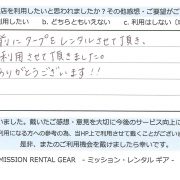 店を利用したいと思われましたか？その他感想・ご要望がご
利用したい b. どちらともいえない c. 利用はしない（
前にタープをレンタルさせて頂き、
利用させて頂きました。
ありがとうございます!!
いました。戴いたご感想・意見を大切に今後のサービス向上に
利用になる方への参考の為、当HP上で利用させて戴くことがござい
是非、またのご利用機会を戴けましたら幸いです。
MISSION RENTAL GEAR - ミッション・レンタル ギア -